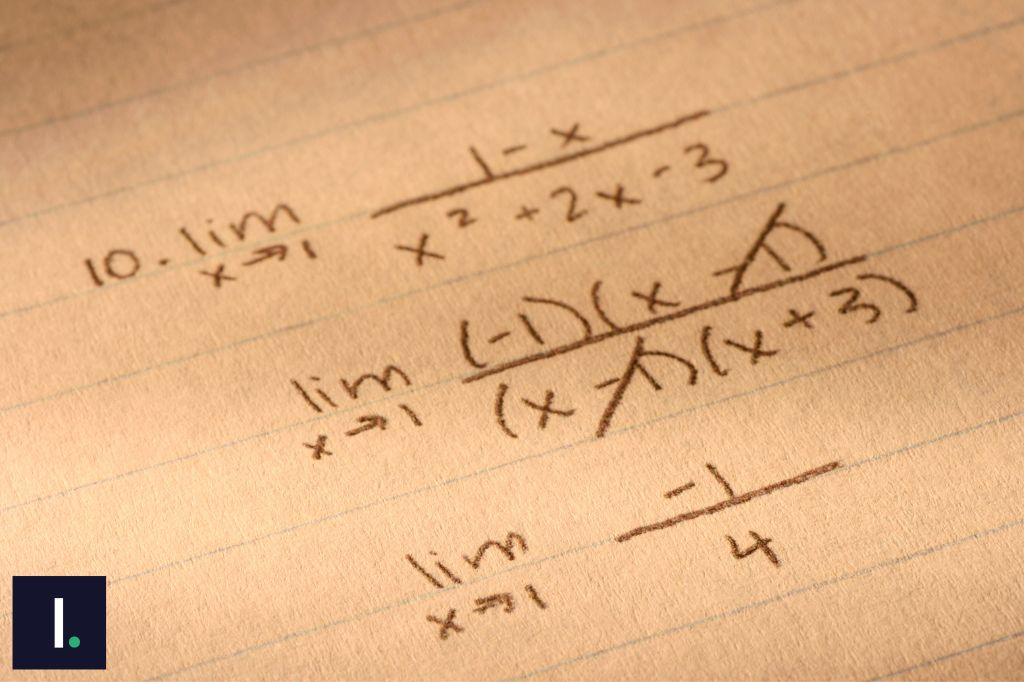 10. lim x→1 1 - x / x² + 2x - 3
lim x→1 (-1)(x - 1) / (x - 1)(x + 3)
lim x→1 -1 / 4
l.